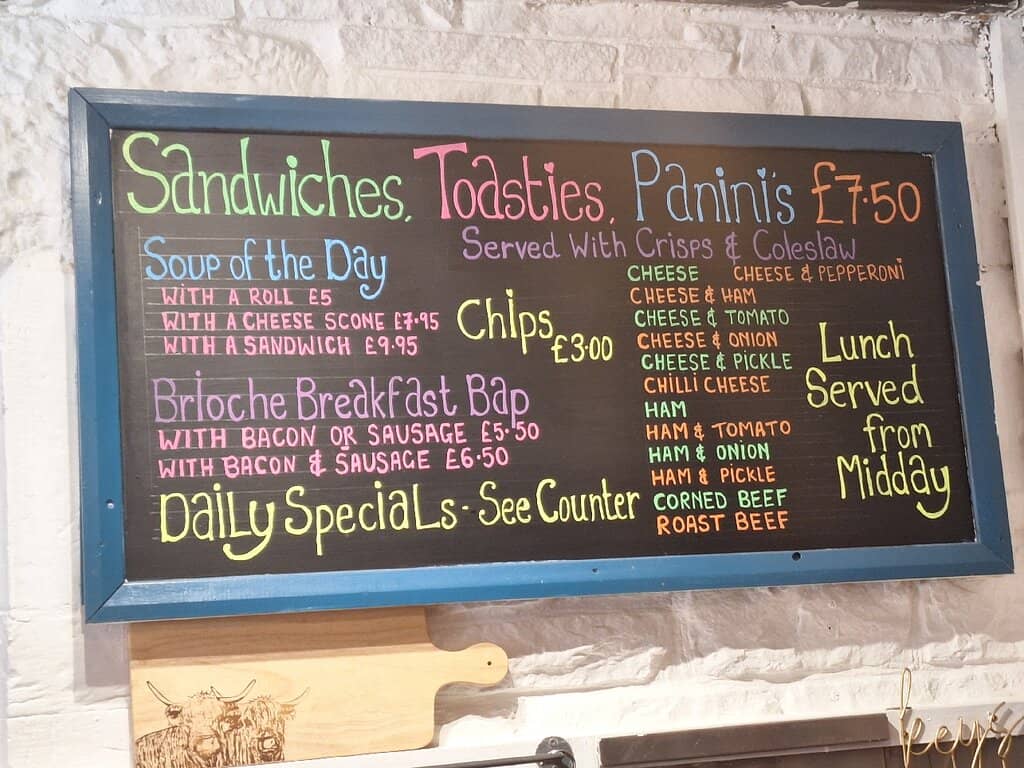 Sandwiches, Toasties, Panini's £7.50
Served With Crisps & Coleslaw
Soup of the Day
WITH A ROLL £5
WITH A CHEESE SCONE £7.95
WITH A SANDWICH £9.95
Chips £3.00
Brioche Breakfast Bap
WITH BACON OR SAUSAGE £5.50
WITH BACON & SAUSAGE £6.50
Daily Specials - See Counter
CHEESE CHEESE & PEPPERONI
CHEESE & HAM
CHEESE & TOMATO
CHEESE & ONION
CHEESE & PICKLE
CHILLI CHEESE
HAM
HAM & TOMATO
HAM & ONION
HAM & PICKLE
CORNED BEEF
ROAST BEEF
Lunch
Served
from
Midday
keys